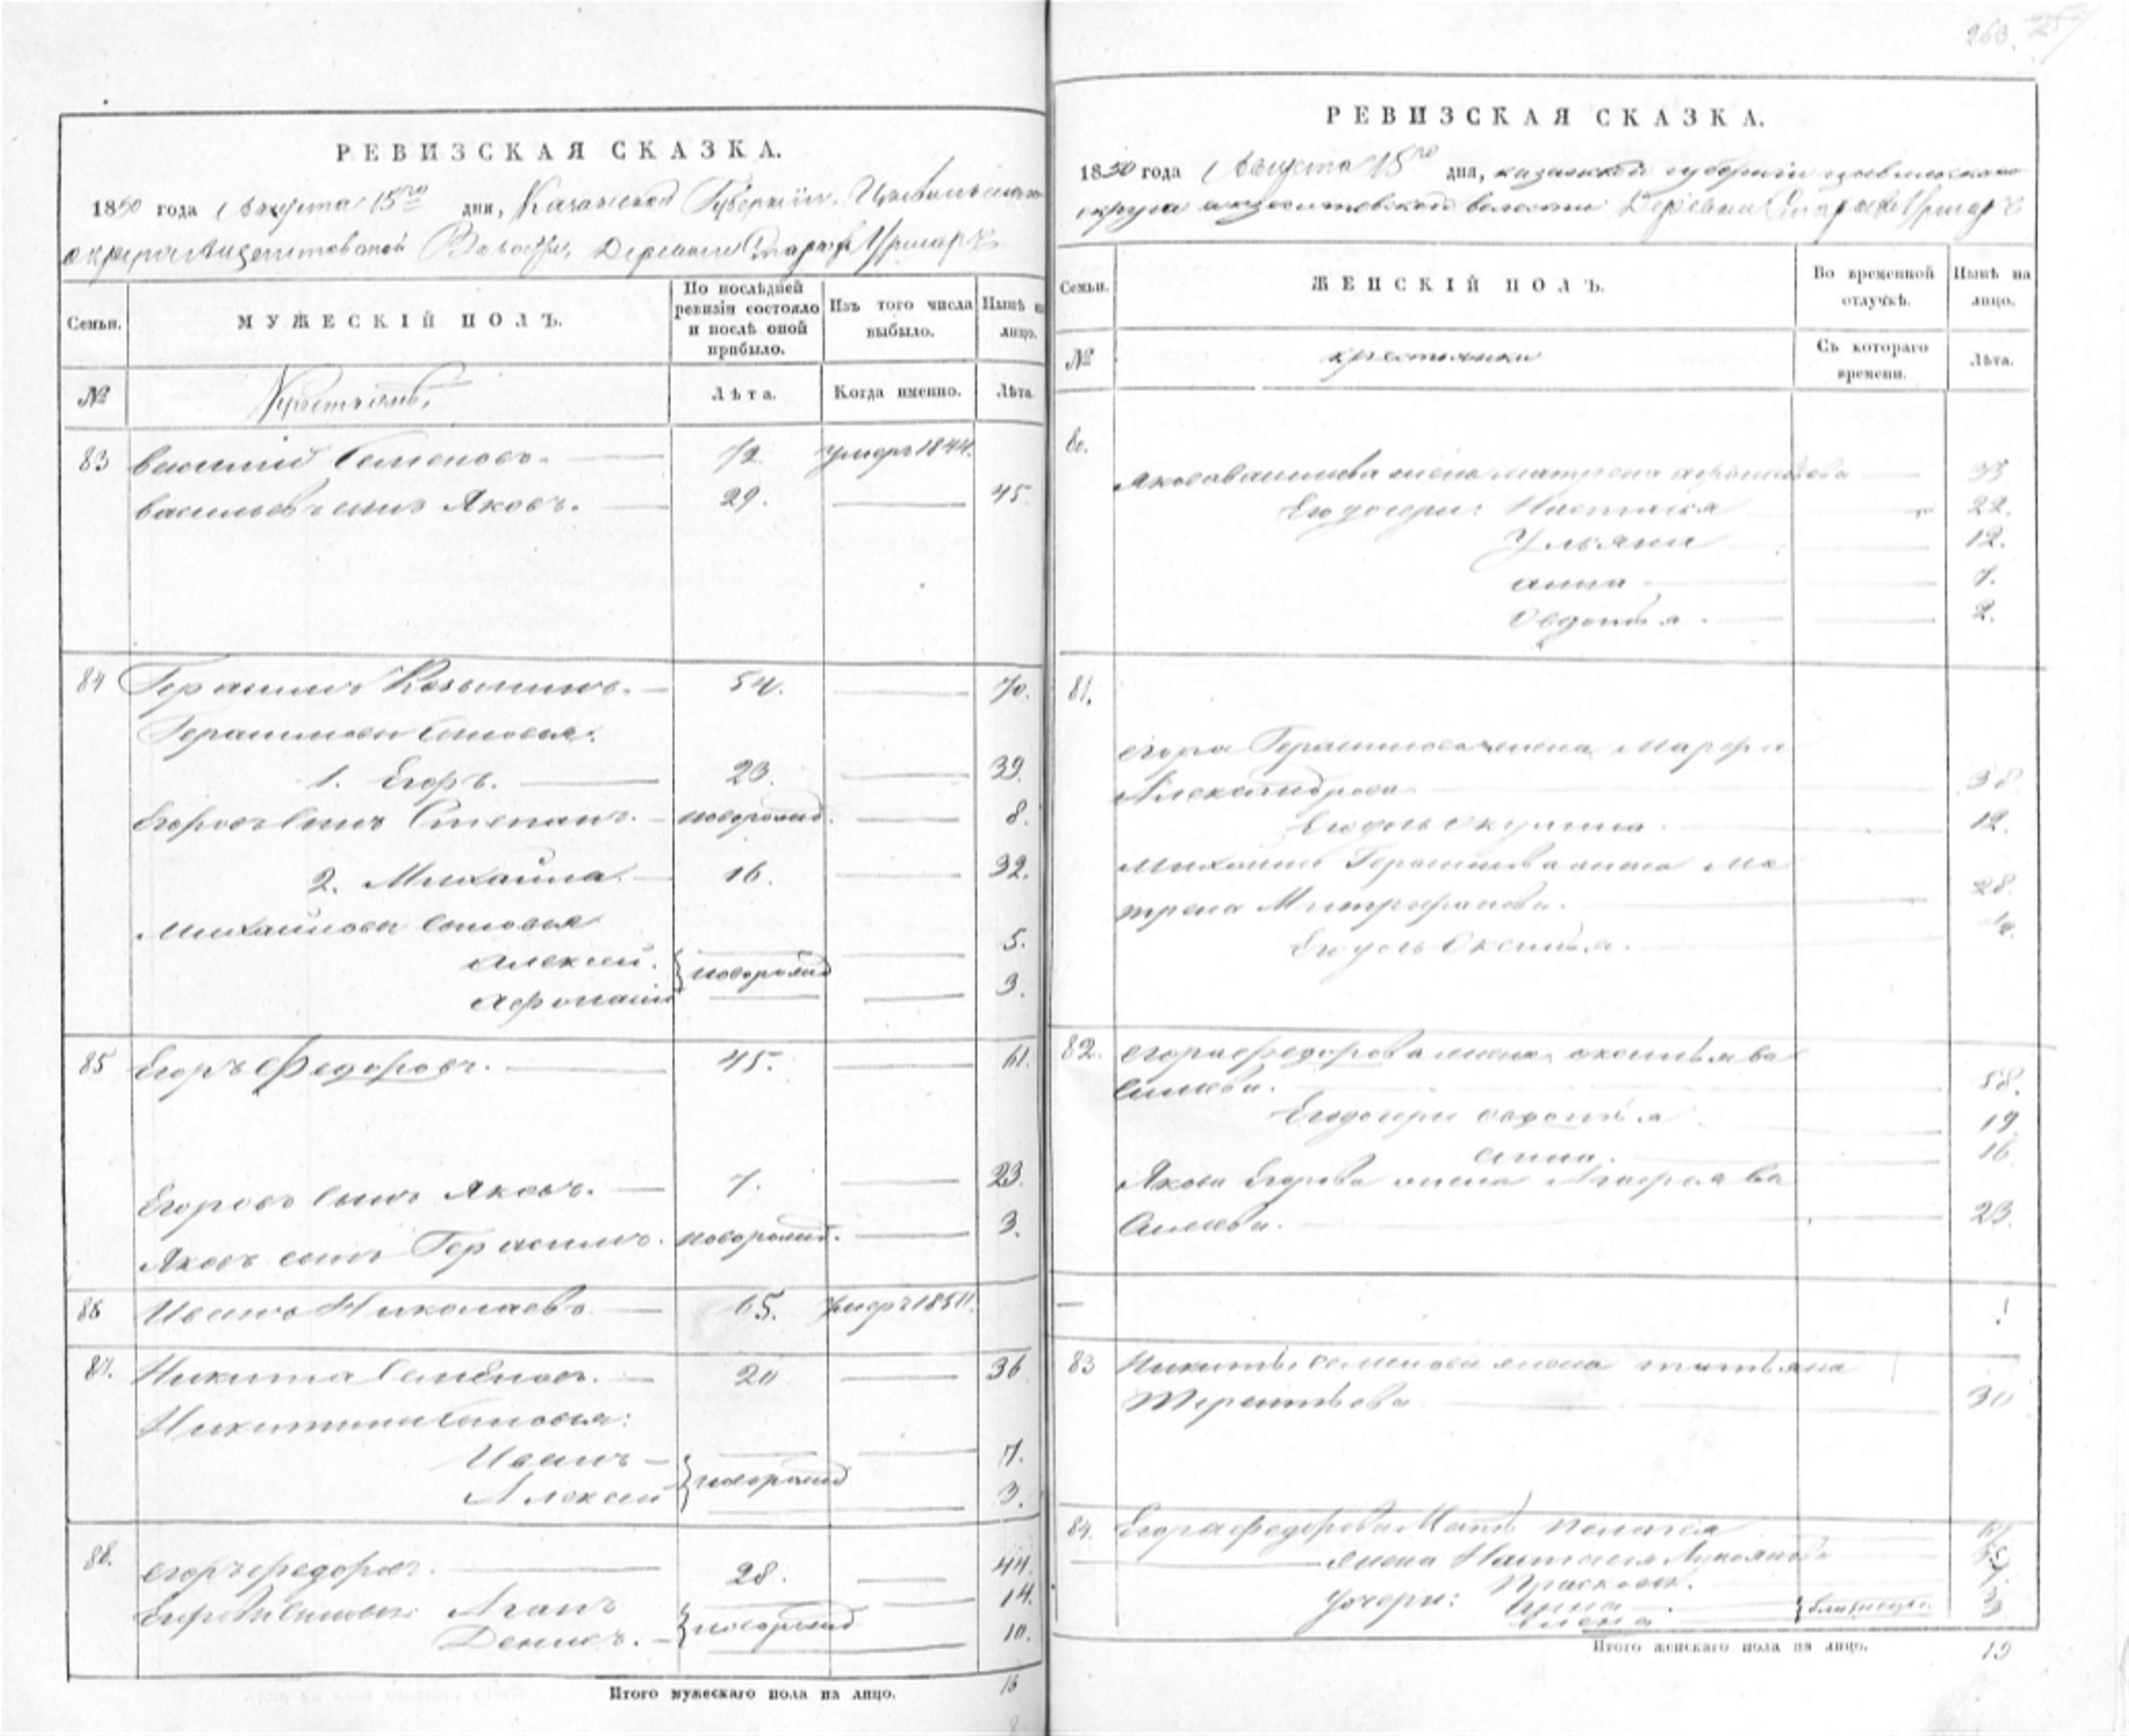 263.
РЕВИЗСКАЯ СКАЗКА.
1850 года Августа 15го дня, Казанской Губернiи, Цивильскаго
округа Волости, Деревни Старыхъ Урмаръ
Семьи.
МУЖЕСКIЙ ПОЛЪ.
По послѣдней ревизiи состояло и послѣ оной прибыло.
Изъ того числа выбыло.
Нынѣ на лицо.
№
Крестьянъ,
Лѣта.
Когда именно.
Лѣта
83 Василiй Семеновъ. 72. умеръ 1844.
Васильевъ сынъ Яковъ. 29. 45.
84 Герасимъ Козьминъ. 54. 70.
Герасимовы сыновья:
1. Егоръ. 23. 39.
Егоровъ сынъ Степанъ. новорожд. 8.
2. Михайла. 16. 32.
Михайловы сыновья
Алексей. 5.
} новорожд
Афонасiй 3.
85 Егоръ Федоровъ. 45. 61.
Егоровъ сынъ Яковъ. 7. 23.
Яковъ сынъ Герасимъ. новорожд. 3.
86 Иванъ Николаевъ 65. умеръ
87. Никита Семёновъ. 20 36
Никитины сыновья:
Иванъ 7.
} новорожд
Алексей 3.
88. Егоръ Федоровъ. 28. 44.
Егоровы сыновья: Аганъ 14.
} новорожд
Денисъ. 10.
Итого мужескаго пола на лицо. 16
РЕВИЗСКАЯ СКАЗКА.
1850 года Августа 15го дня, казанской губернiи цивильскаго
округа волости Деревни Старыхъ Урмаръ
Семьи.
ЖЕНСКIЙ ПОЛЪ.
Во временной отлучкѣ.
Нынѣ на лицо.
№
крестьянки
Съ котораго времени.
Лѣта.
80.
Якова Васильева жена матрена афонасьева
Его дочери: Настасья 22.
Ульяна 12.
анна 7.
Овдотья 2.
81.
егора Герасимова жена Марфа
Александрова 38
Его дочь Окулина. 12.
Михайлы Герасимова жена Ма
трена Митрофанова. 28.
Его дочь Оксинья.
82. егора федорова жена оксинья ва
сильева. 58.
Его дочери овдотья 19.
анна. 16
Якова Егорова жена Агафья ва
сильева. 23.
83 Никиты семенова жена татьяна
Терентьева 30
84. Егора федорова Мать пелагея
жена Настасья Лукоянова
дочери: Прасковья.
Анна
} близнецы. 3
Елена
Итого женскаго пола на лицо. 19